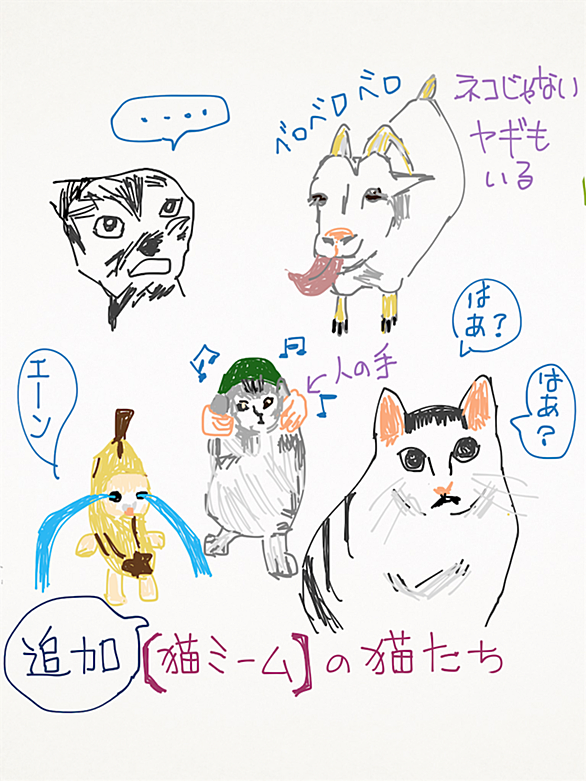 ・・・・
ベロベロベロ
ネコじゃない
ヤギも
いる
はあ?
はあ?
人の手
エーン
追加【猫ミーム】の猫たち